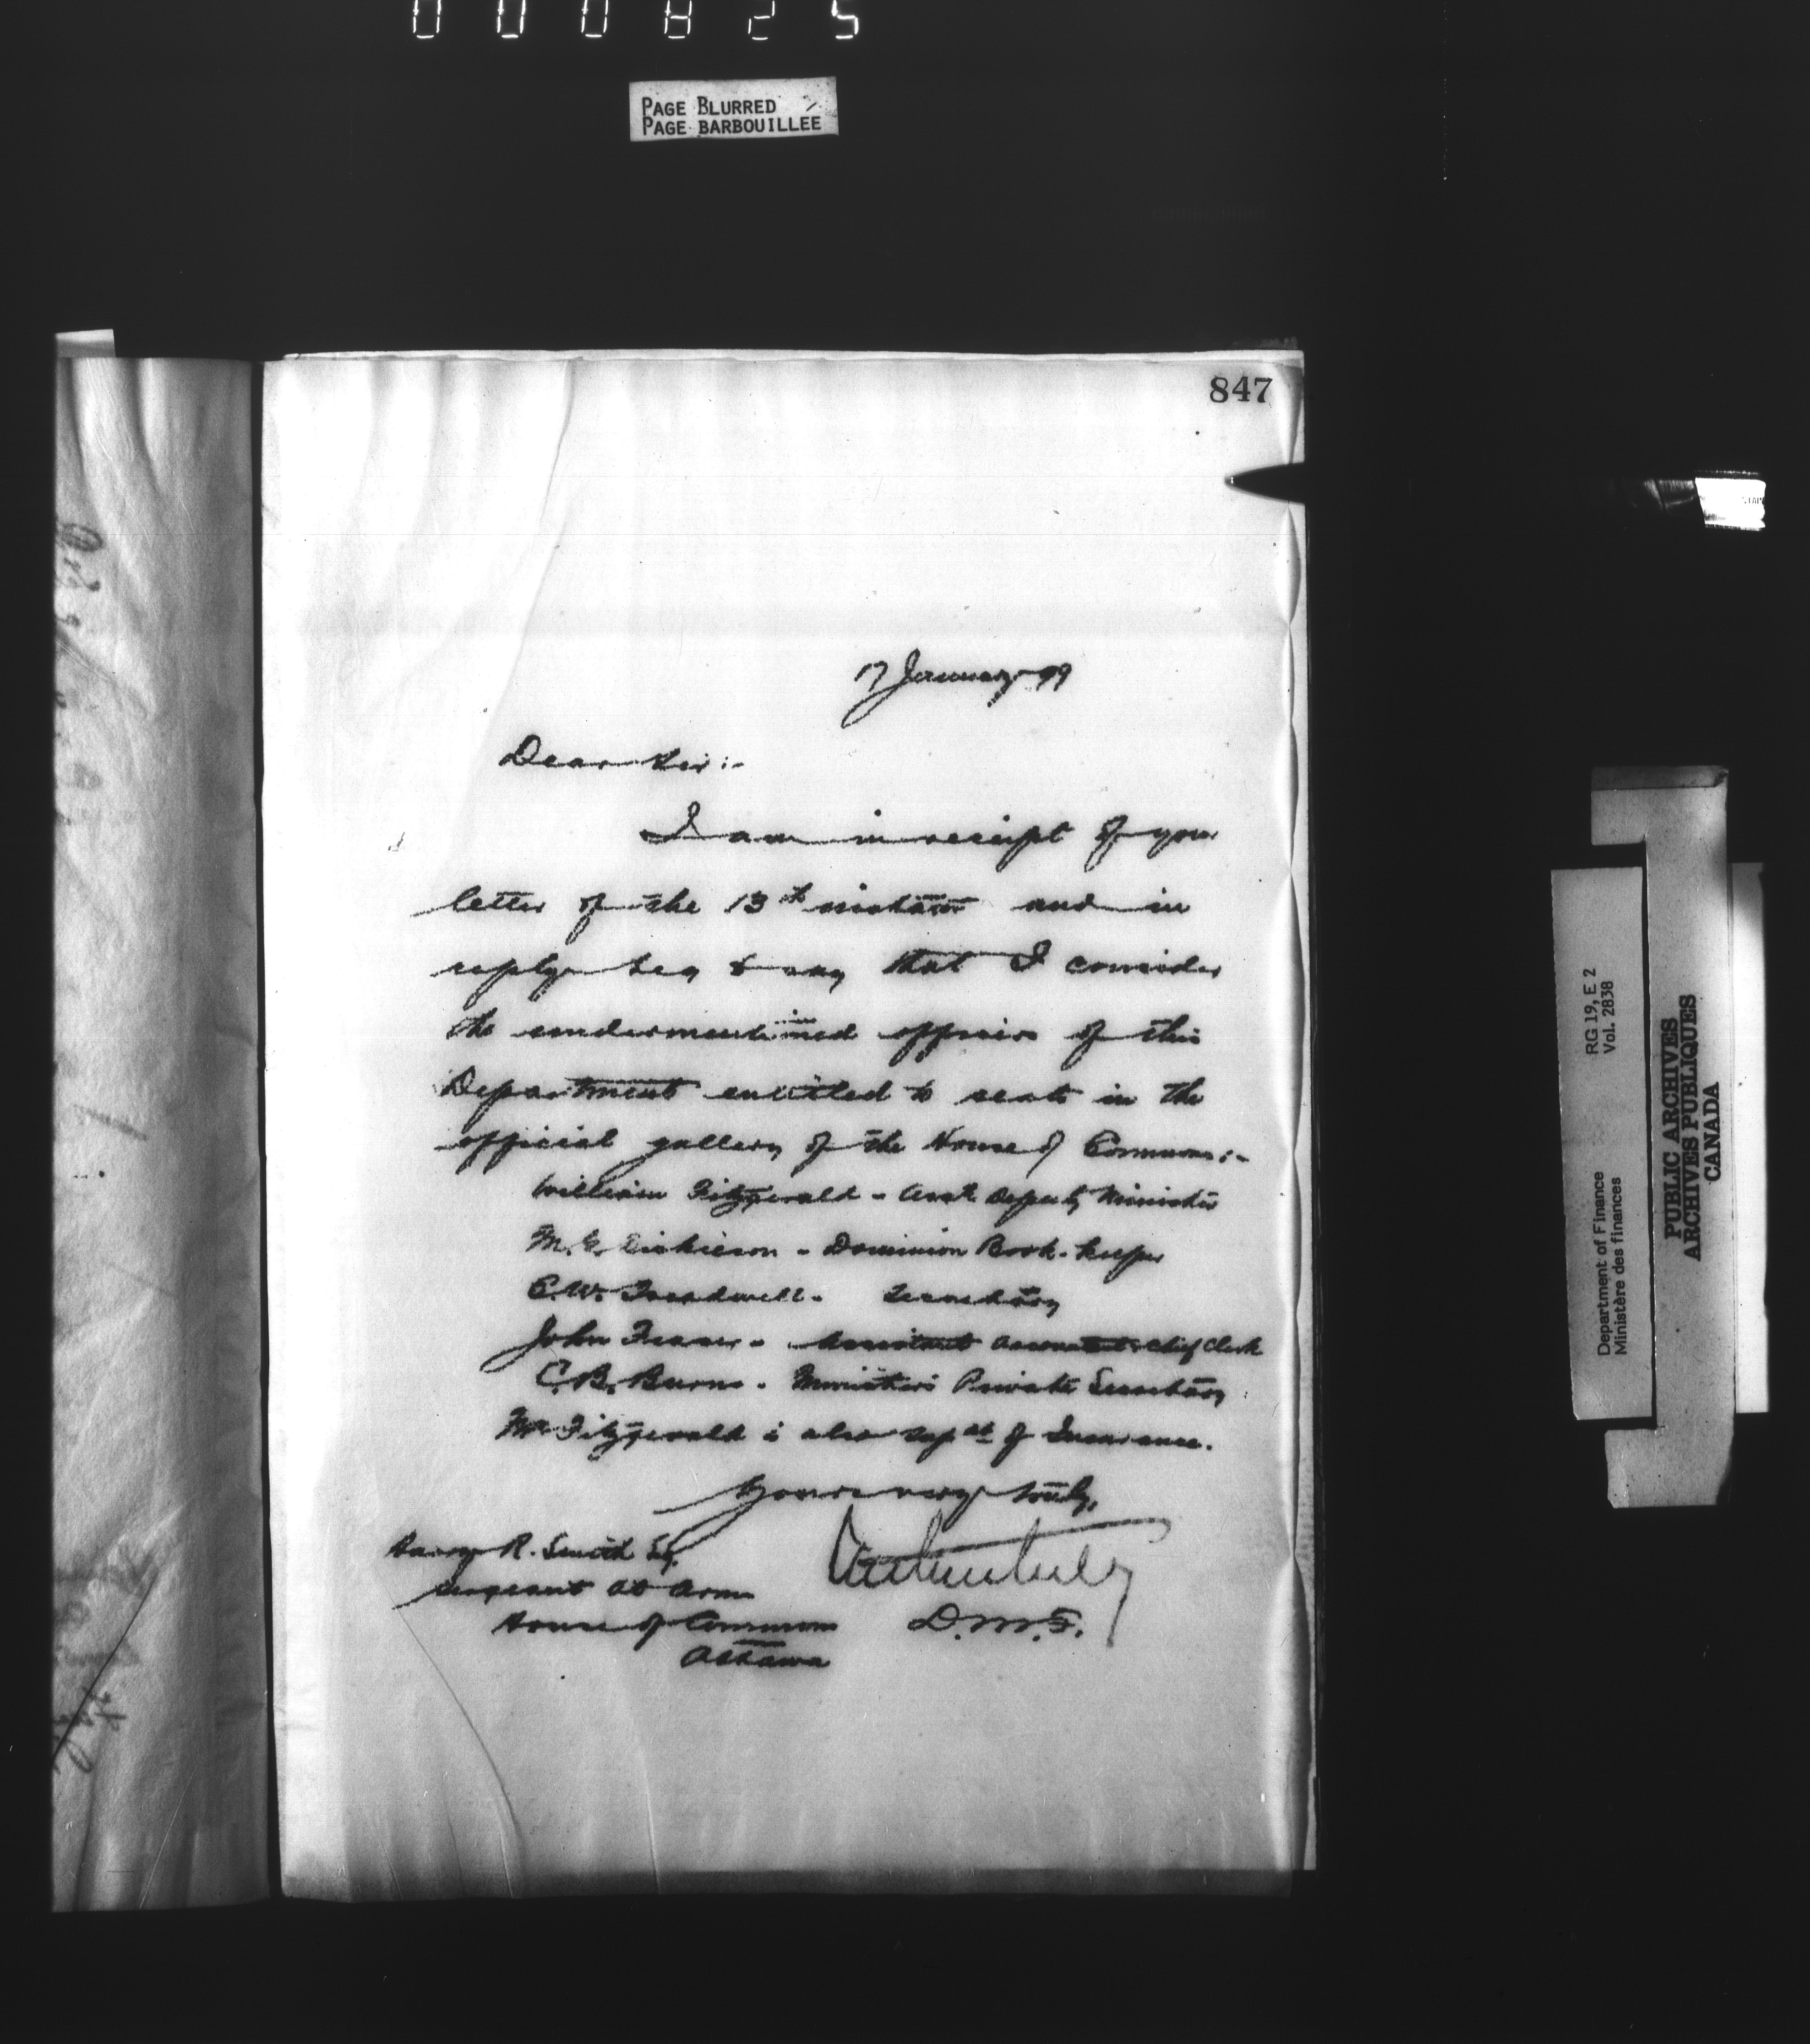 000825
PAGE BLURRED
PAGE BARBOUILLEE
847
17 January 99
Dear Sir :-
I am in receipt of your
letter of the 13th instant and in
reply beg to say that I consider
the undermentioned officers of this
Department entitled to seats in the
official gallery of the House of Commons :-
William Fitzgerald - Asst Deputy Minister
M. G. Dickieson - Dominion Book-keeper
C. W. Treadwell - Secretary
John Fraser - Assistant Accountant & Chief Clerk
C. B. Burns - Minister's Private Secretary
Mr Fitzgerald is also Supdt of Insurance.
Yours very truly,
D. M. F.
Harry R. Smith Esq.
Sergeant at Arms
House of Commons
Ottawa
RG 19, E 2
Vol. 2838
Department of Finance
Ministère des finances
PUBLIC ARCHIVES
ARCHIVES PUBLIQUES
CANADA